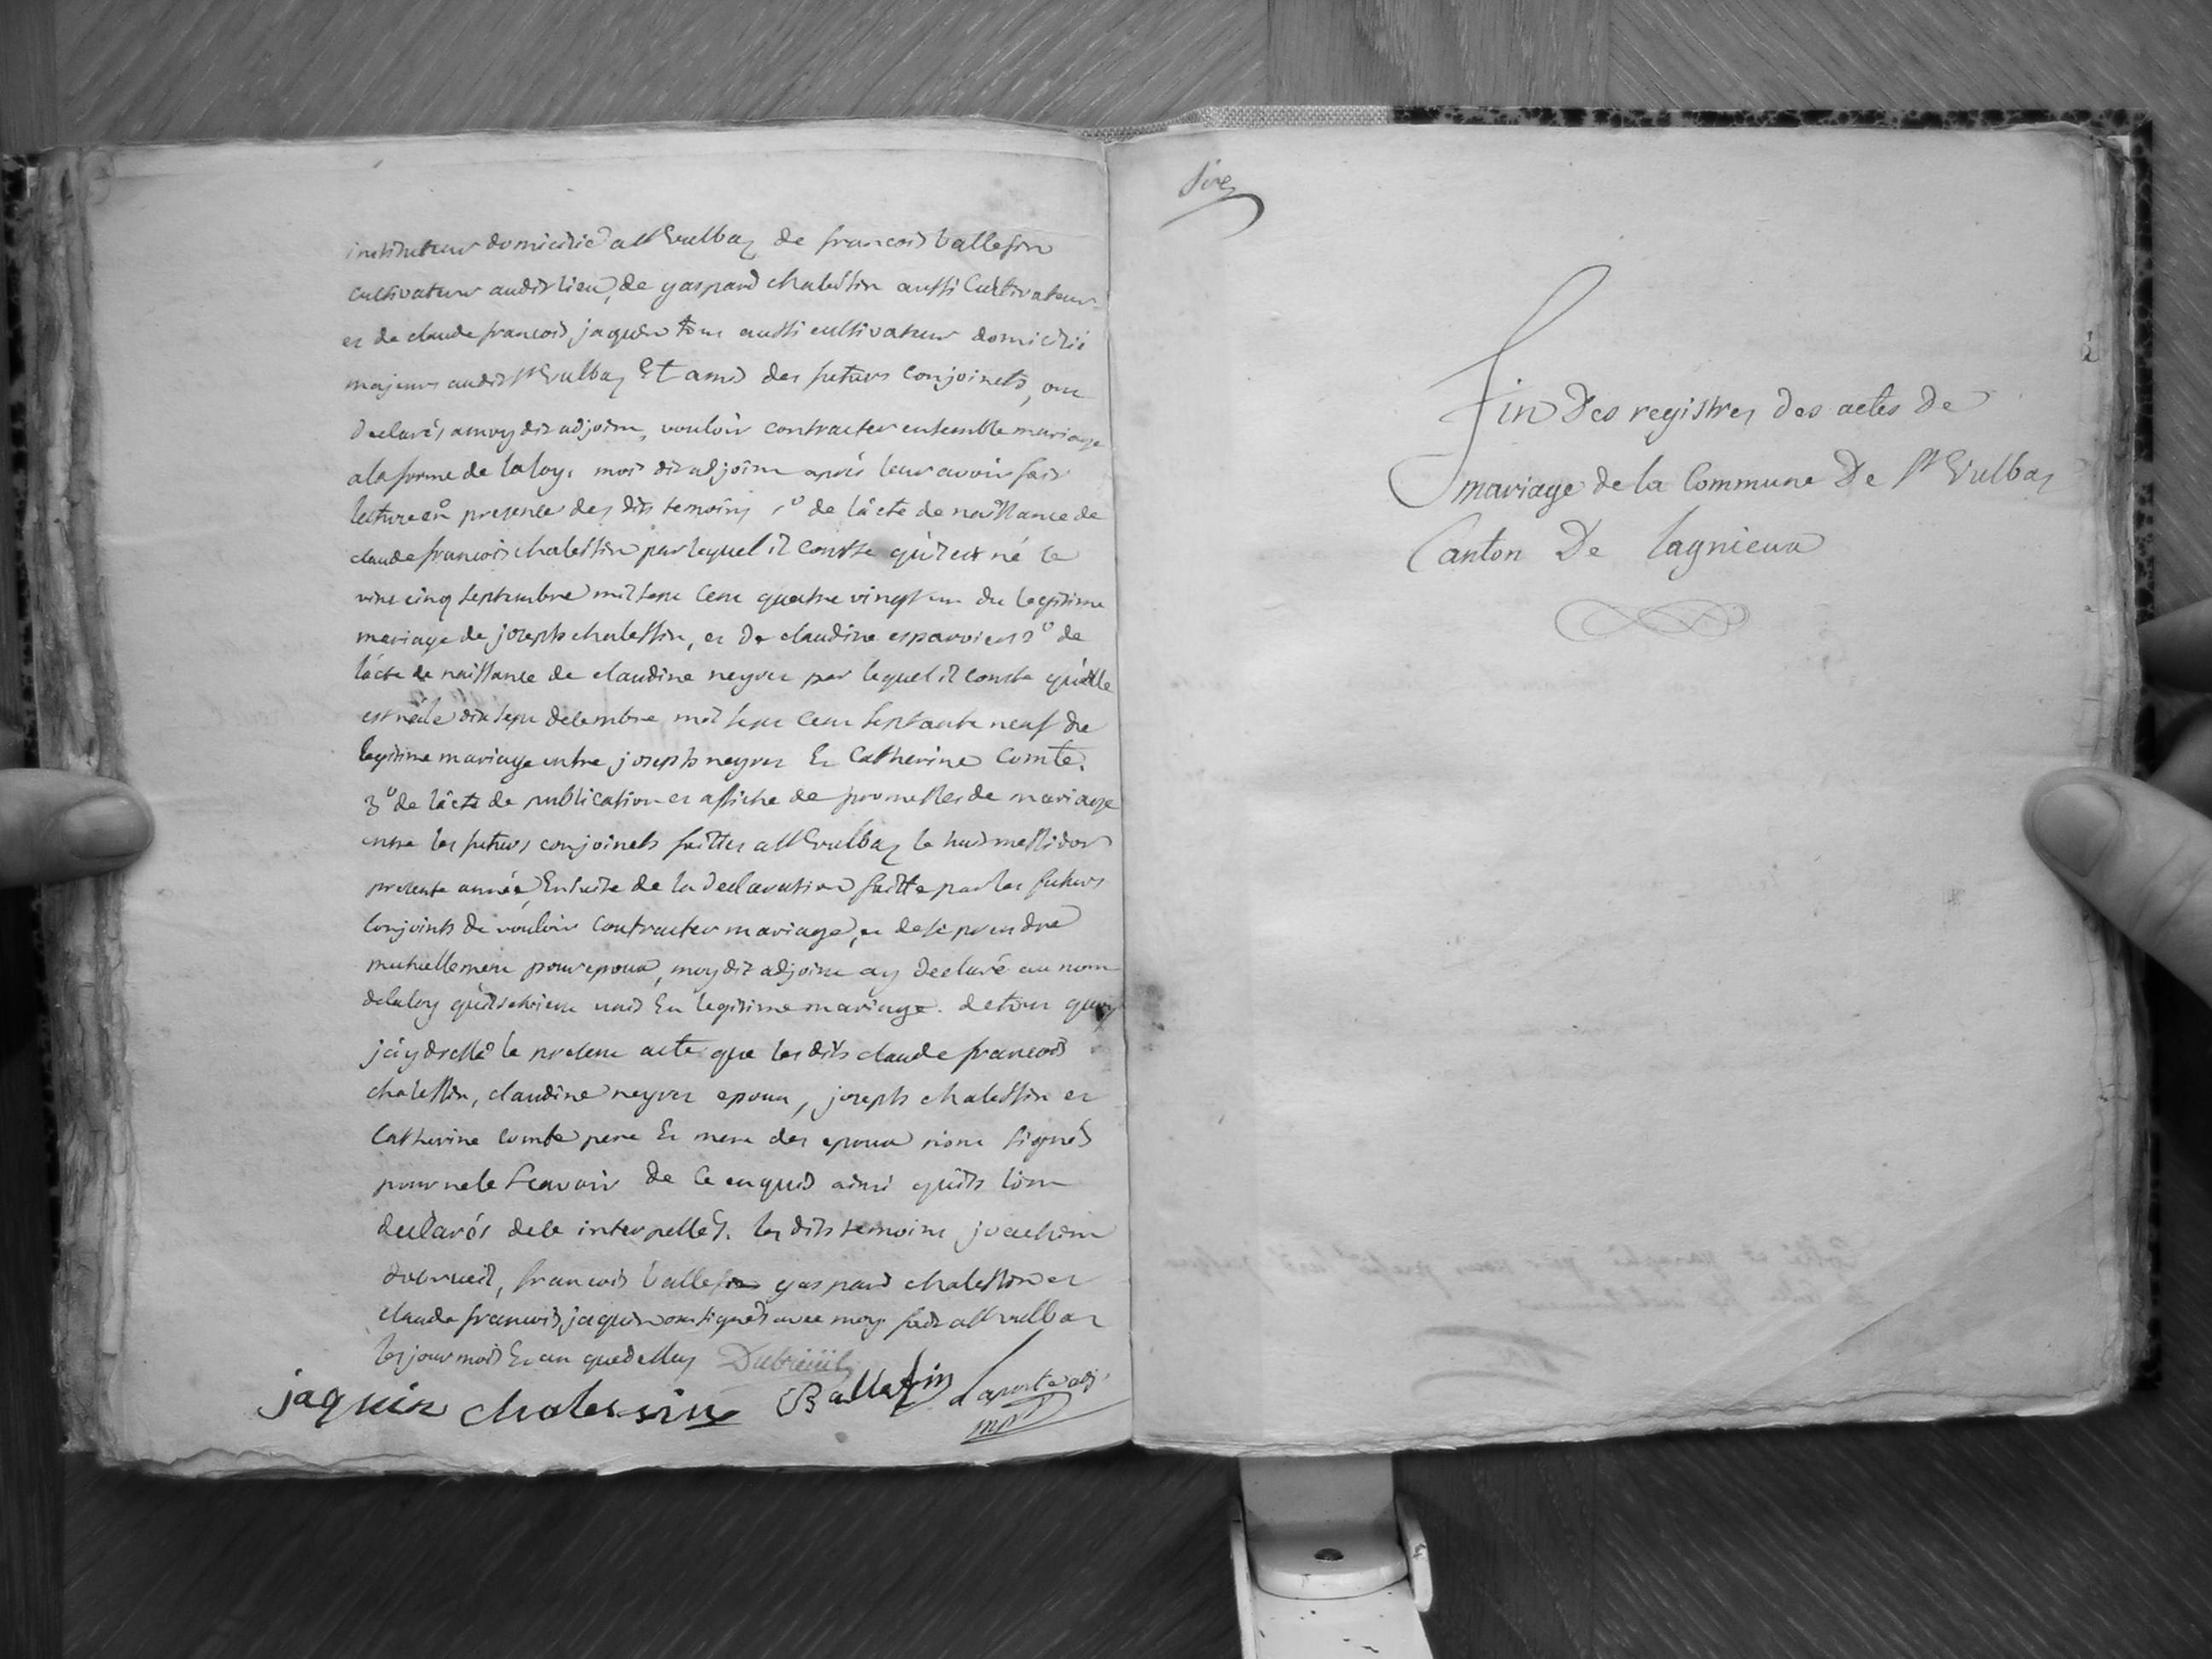 instituteur domicilié a St Vulbaz de francois Vallesin
cultivateur audit lieu, de gaspard chalessin aussi Cultivateur
et de claude francois jaquin tous aussi cultivateur domicilié
majeurs audit St Vulbaz Et amis des futurs conjoinets, ont
declarés a moy dit adjoint, vouloir contracter ensemble mariage
a la forme de la loy. moi dit adjoint après leur avoir fait
lecture en presence des dits temoins 1o de l'acte de naissance de
claude francois chalessin par lequel il conste qu'il est né le
vint cinq septembre mil sept cent quatre vingt un du legitime
mariage de joseph chalessin, et de claudine esparvier 2o de
l'acte de naissance de claudine neyret par lequel il conste qu'elle
est née le dix sept decembre mil sept cent septante neuf du
legitime mariage entre joseph neyret Et Catherine Comte.
3o de l'acte de publication et affiche de promesses de mariage
entre les futurs conjoinets faittes a St Vulbaz le huit messidor
presente année, Ensuite de la declaration faitte par les futurs
Conjoints de vouloir Contracter mariage, et de se prendre
mutuellement pour epoux, moy dit adjoint ay declaré au nom
de la loy qu'ils etoient unis En legitime mariage. de tout quoy
j'ay dressé le present acte que les dits claude francois
chalessin, claudine neyret epoux, joseph chalessin et
Catherine Comte pere Et mere des epoux n'ont signés
pour ne le scavoir de ce enquis ainsi qu'ils l'ont
declarés de ce interpellés. les dits temoins joachim
dubrueil, francois Vallesin gaspard chalessin et
claude francois, jaquin ont signés avec moy fait a St vulbaz
les jour mois Et an que dessus Dubrüeil
jaquin chalessin Ballefin Laporte adj.
Fin Des registres des actes de
mariage de la Commune De St Vulbaz
Canton De Lagnieux